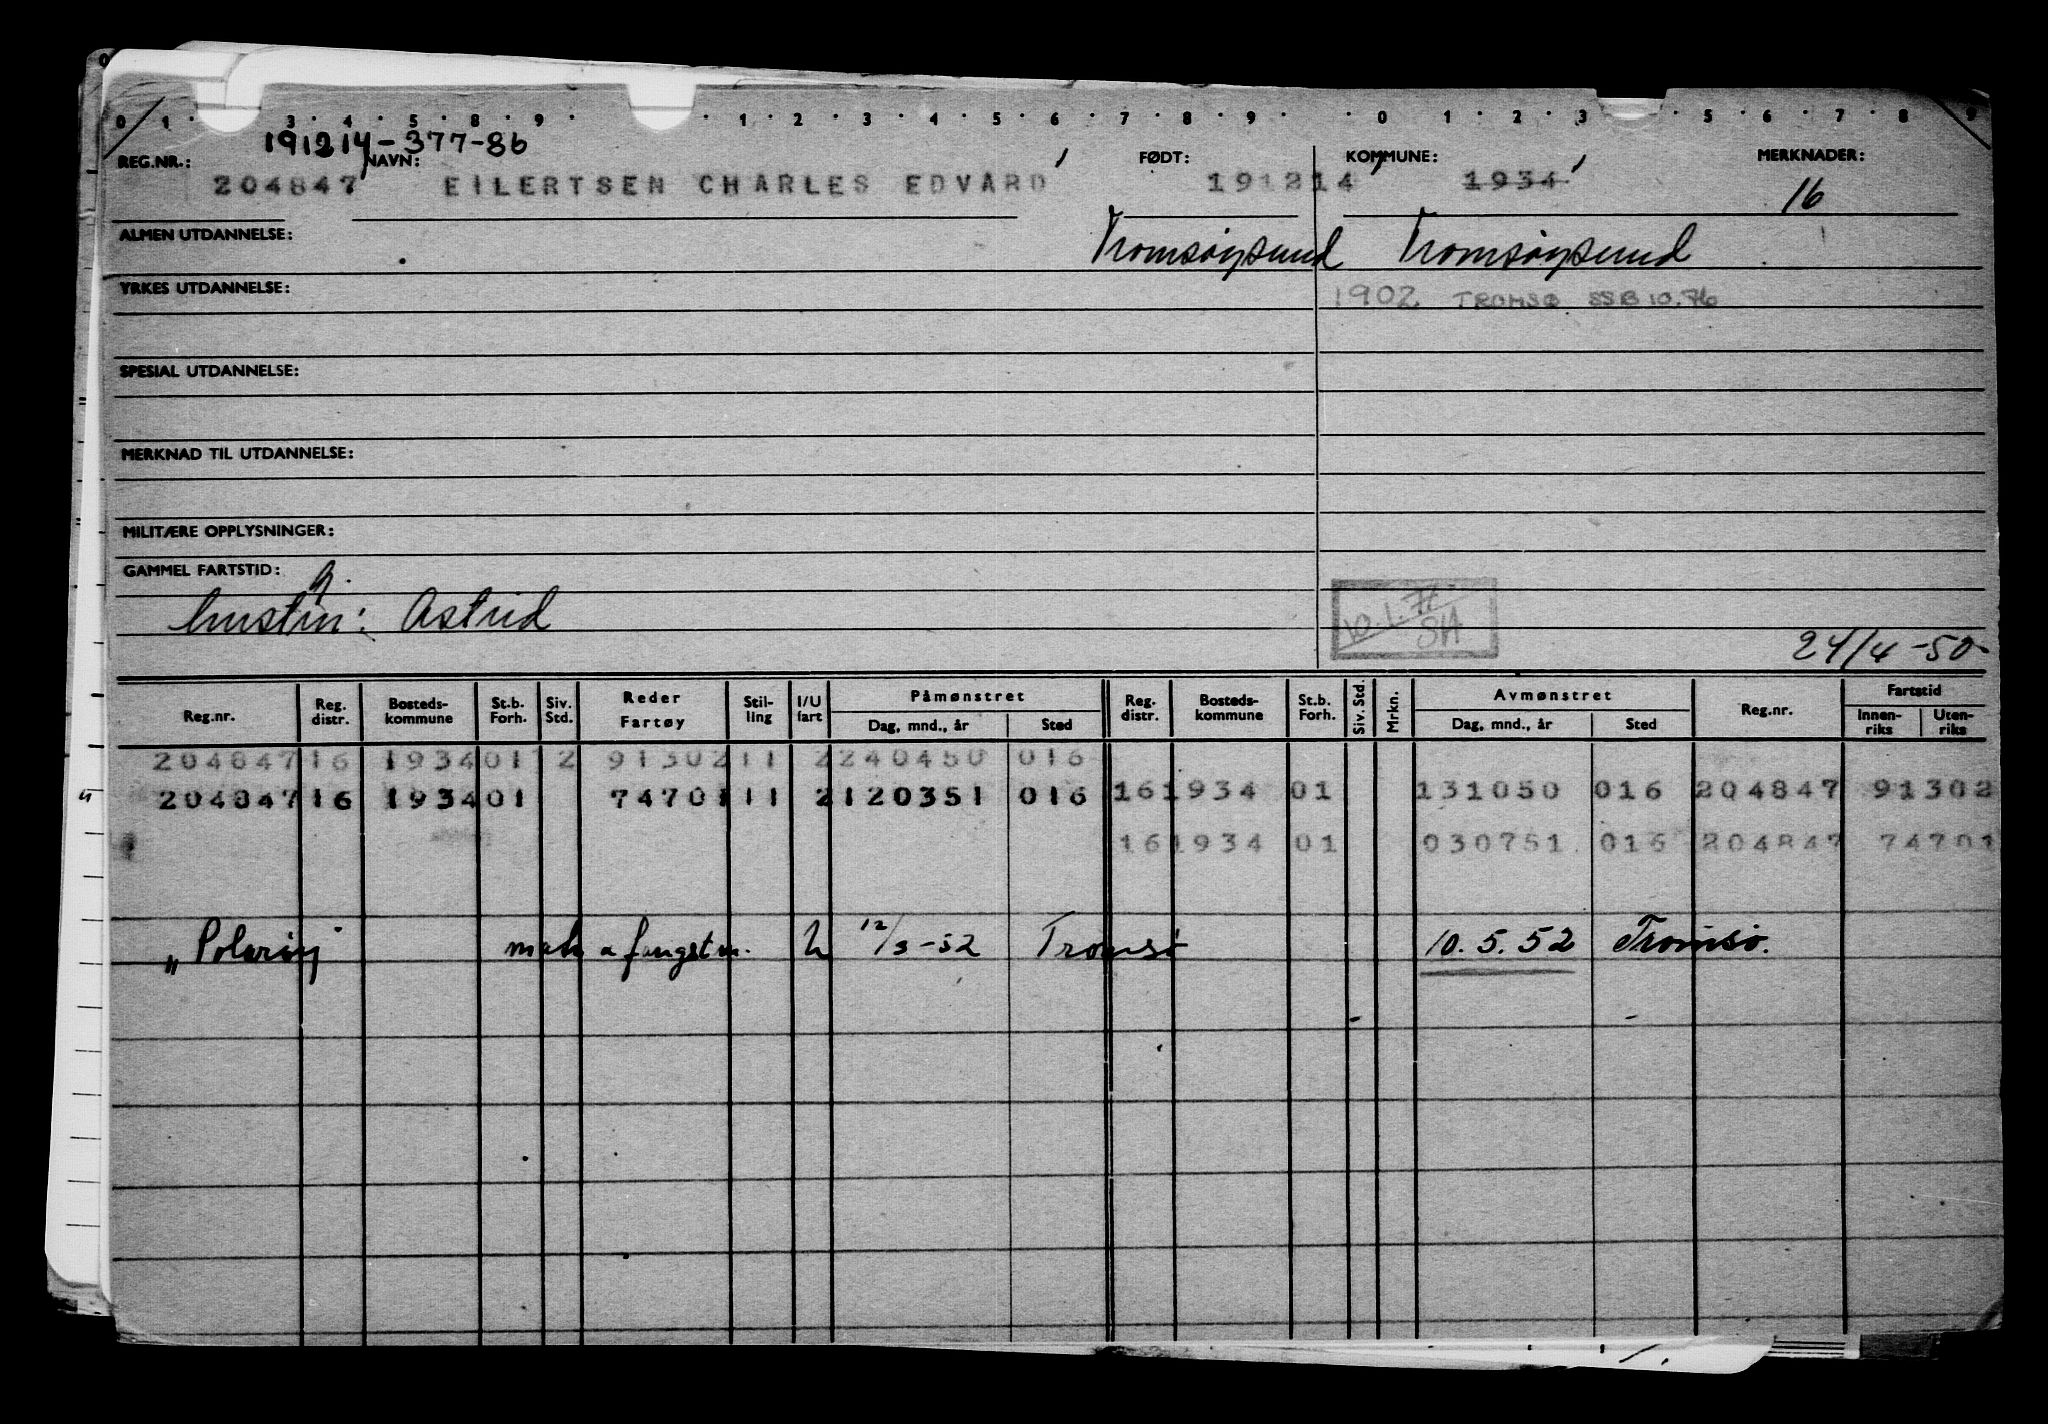 0 1 · 3 · 4 · 5 · 8 · 9 · · 1 · 2 · 3 · 4 · 5 · 6 · 7 · 8 · 9 · · 0 · 1 · 2 · 3 · 5 · 6 · 7 · 8 · 9
191214-377-86
REG.NR.: NAVN: FØDT: KOMMUNE: MERKNADER:
204847 EILERTSEN CHARLES EDVARD 191214 1934 16
ALMEN UTDANNELSE: Tromsøysund Tromsøysund
YRKES UTDANNELSE: 1902 TROMSØ SSB 10.76
SPESIAL UTDANNELSE:
MERKNAD TIL UTDANNELSE:
MILITÆRE OPPLYSNINGER:
GAMMEL FARTSTID:
hustru: Astrid
24/4-50
Reg.nr. Reg. distr. Bosteds-kommune St.b. Forh. Siv. Std. Reder Fartøy Stil-ling I/U fart Påmønstret Dag, mnd., år Sted Reg. distr. Bosteds-kommune St.b. Forh. Siv. Std. Mrkn. Avmønstret Dag, mnd., år Sted Reg.nr. Fartstid Innen-riks Uten-riks
204847 16 1934 01 2 91302 11 2 240450 016
204847 16 1934 01 74701 11 2 120351 016 16 1934 01 131050 016 204847 91302
16 1934 01 030751 016 204847 74701
"Polarøy" fangstm. U 12/3-52 Tromsø 10.5.52 Tromsø.